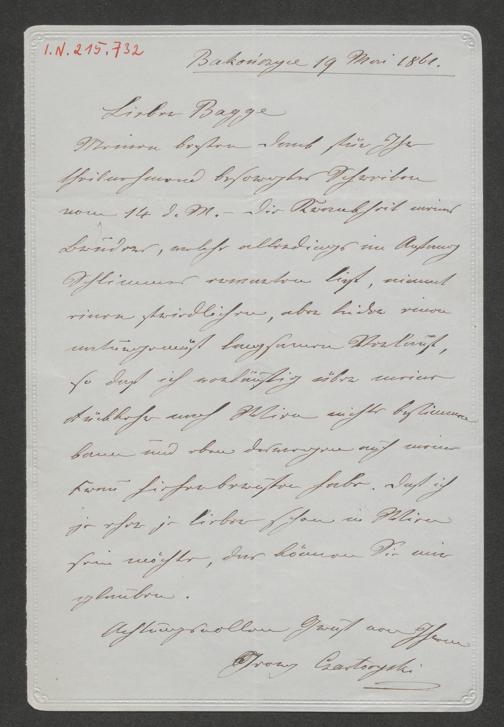 I.N. 215.732
Bakończyce 19 Mai 1861.
Lieber Bagge
Meinen besten Dank für Ihr
theilnehmend besorgtes Schreiben
vom 14 d. M. – Die Krankheit meines
Bruders, welche allerdings im Anfang
Schlimmes erwarten ließ, nimmt
einen friedlichen, aber leider einen
naturgemäß langsamen Verlauf,
so daß ich vorläufig über meine
Rückkehr nach Wien nichts bestimmen
kann und eben deswegen auch meine
Frau hieher berufen habe. Daß ich
je eher je lieber schon in Wien
sein möchte, das können Sie mir
glauben.
Achtungsvollen Gruß von Ihrem
Czartoryski